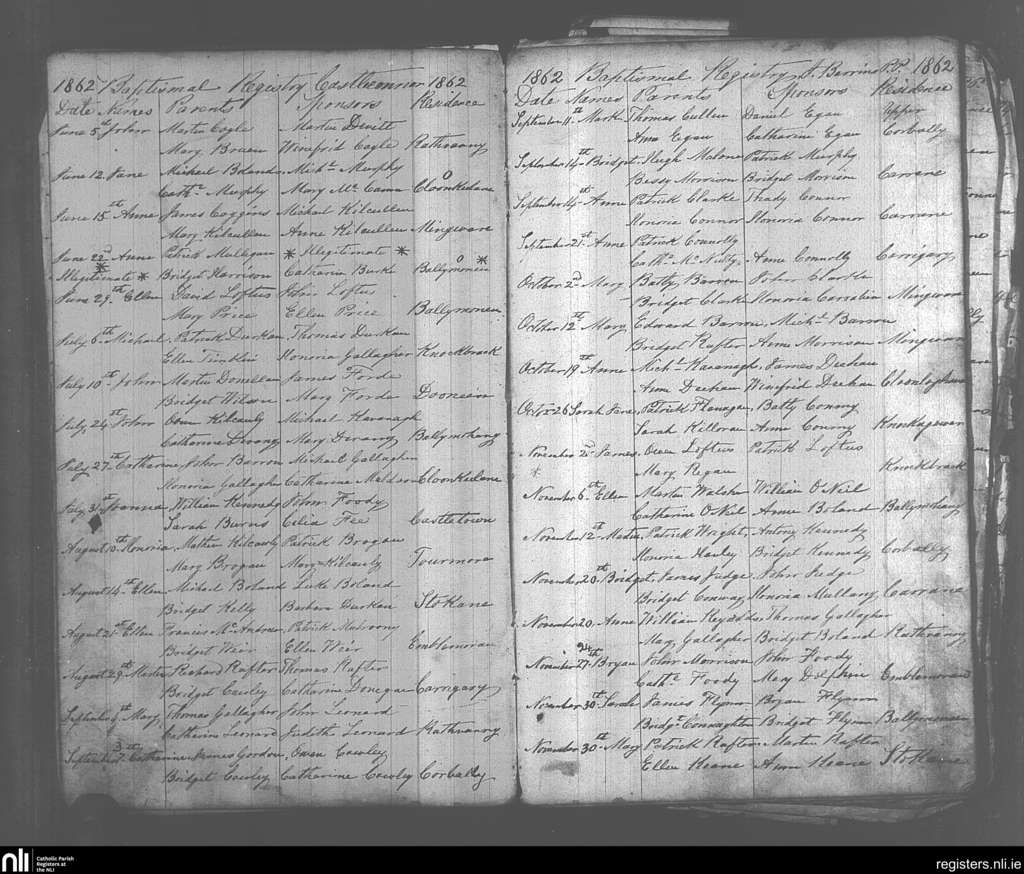 1862 Baptismal Registry Castleconnor 1862
Date Names Parents Sponsors Residence
June 5th John Martin Cogle Martin Devitt
Mary Bruen Winefrid Cogle Rathvanny
June 12 Jane Michael Boland Michl Murphy
Cathe Murphy Mary Mc Cloonkeelane
June 15th Anne James Coggins Michael Kilcullen
Mary Kilcullen Anne Kilcullen
June 22nd Anne Patrick Mulligan * Illegitimate *
Illegitimate * Bridget Harrison Catharine Burke Ballymoneen *
June 29th Ellen David Loftus John Loftus
Mary Price Ellen Price Ballymoneen
July 6th Michael Patrick Durkan Thomas Durkan
Ellen Honoria Gallagher Knockbrack
July 10th John Martin Donellan James Forde
Bridget Wilson Mary Forde Dooneen
July 24th John Owen Kilcauly Michael Kavanagh
Catharine Mary
July 27th Catharine John Barron Michael Gallagher
Honoria Gallagher Catharine Cloonkeelane
July 31st Joanna William Kennedy John Foody
Sarah Burns Celia Fee Castletown
August 10th Honoria Mathew Kilcauly Patrick Brogan
Mary Brogan Mary Kilcauly Tourmore
August 14th Ellen Michael Boland Luke Boland
Bridget Kelly Barbara Durkan Stokane
August 21st Ellen Francis Mc Andrew Patrick Mulroony
Bridget Weir Ellen Weir Emblemoran
August 29th Martin Richard Rafter Thomas Rafter
Bridget Cawley Catharine Donegan Carrigary
September 4th Mary Thomas Gallagher John Leonard
Catharine Leonard Judith Leonard Rathvanny
September Catharine James Gordon Owen Cawley
Bridget Cawley Catharine Cawley Corbally
1862 Baptismal Registry P.P. 1862
Date Names Parents Sponsors Residence
September 11th Mark Thomas Cullen Daniel Egan Upper
Anne Egan Catharine Egan Corbally
September 14th Bridget Hugh Malone Patrick Murphy
Bessy Morrison Bridget Morrison Carrane
September 14th Anne Patrick Clarke Thady Connor
Honoria Connor Honoria Connor Carrane
September 21st Anne Patrick Connolly
Cathe Mc Nulty Anne Connolly Carrigary
October 2nd Mary Batty Barron John Clarke
Bridget Clarke Honoria
October 12th Mary Edward Barron Michl Barron
Bridget Rafter Anne Morrison
October 19th Anne Michl Kavanagh James Deehan
Anne Deehan Winefrid Deehan
Octor 26 Sarah Jane Patrick Flanagan Batty Conmy
Sarah Killoran Anne Conmy
November 2nd James Owen Loftus Patrick Loftus
* Mary Regan Knockbrack
November 6th Ellen Martin Walshe William O Neil
Catharine O Neil Anne Boland
November 12th Martin Patrick Wright Antony Kennedy
Honoria Hanley Bridget Kennedy Corbally
November 20th Bridget James Judge John Judge
Bridget Conway Honoria Mullany Carrane
November 20 Anne William Thomas Gallagher
Mary Gallagher Bridget Boland Rathvanny
November 27th Bryan John Morrison John Foody
Cathe Foody Mary Emblemoran
November 30th Sarah James Flynn Bryan Flynn
Bridgt Connaghton Bridget Flynn Ballymoneen
November 30th Mary Patrick Rafter Martin Rafter
Ellen Keane Anne Keane Stokane
nli Catholic Parish
Registers at
the NLI
registers.nli.ie